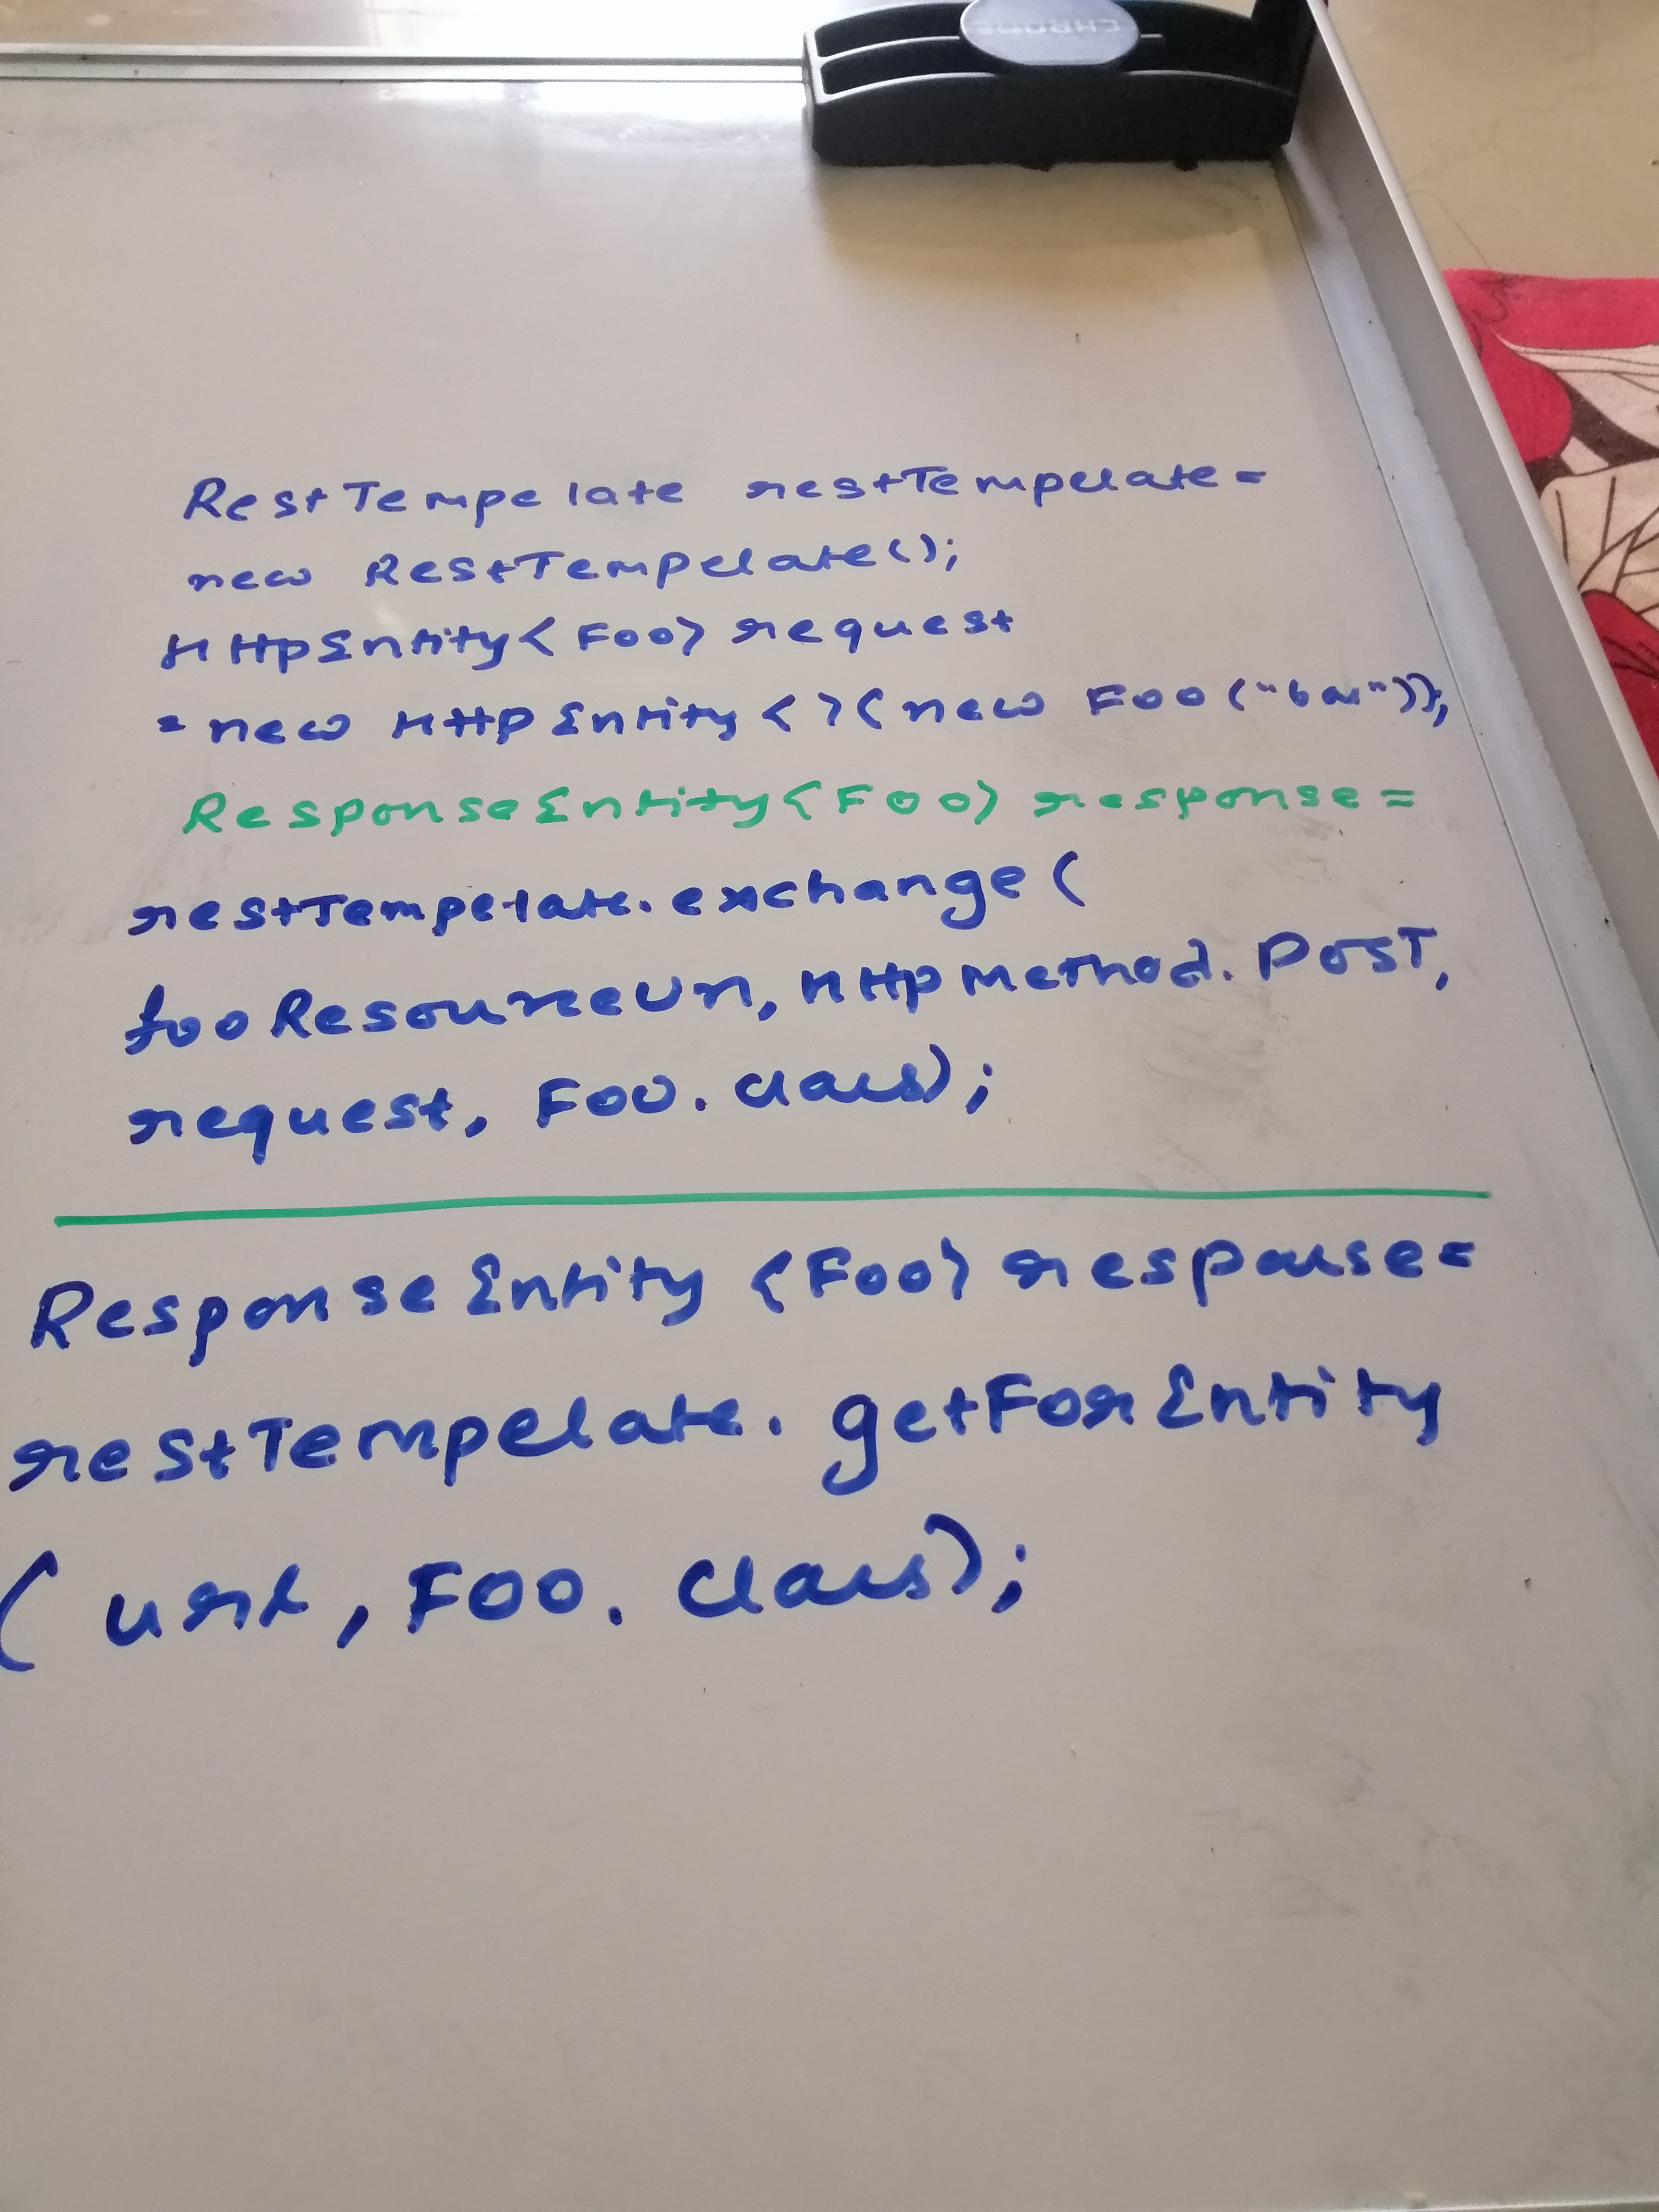 CHROME
RestTempelate restTempelate =
new RestTempelate();
HttpEntity<Foo> request
= new HttpEntity<>(new Foo("bar"));
ResponseEntity<Foo> response =
restTempelate.exchange(
fooResourceUrl, HttpMethod.POST,
request, Foo.class);
ResponseEntity <Foo> response =
restTempelate.getForEntity
(url, Foo.class);